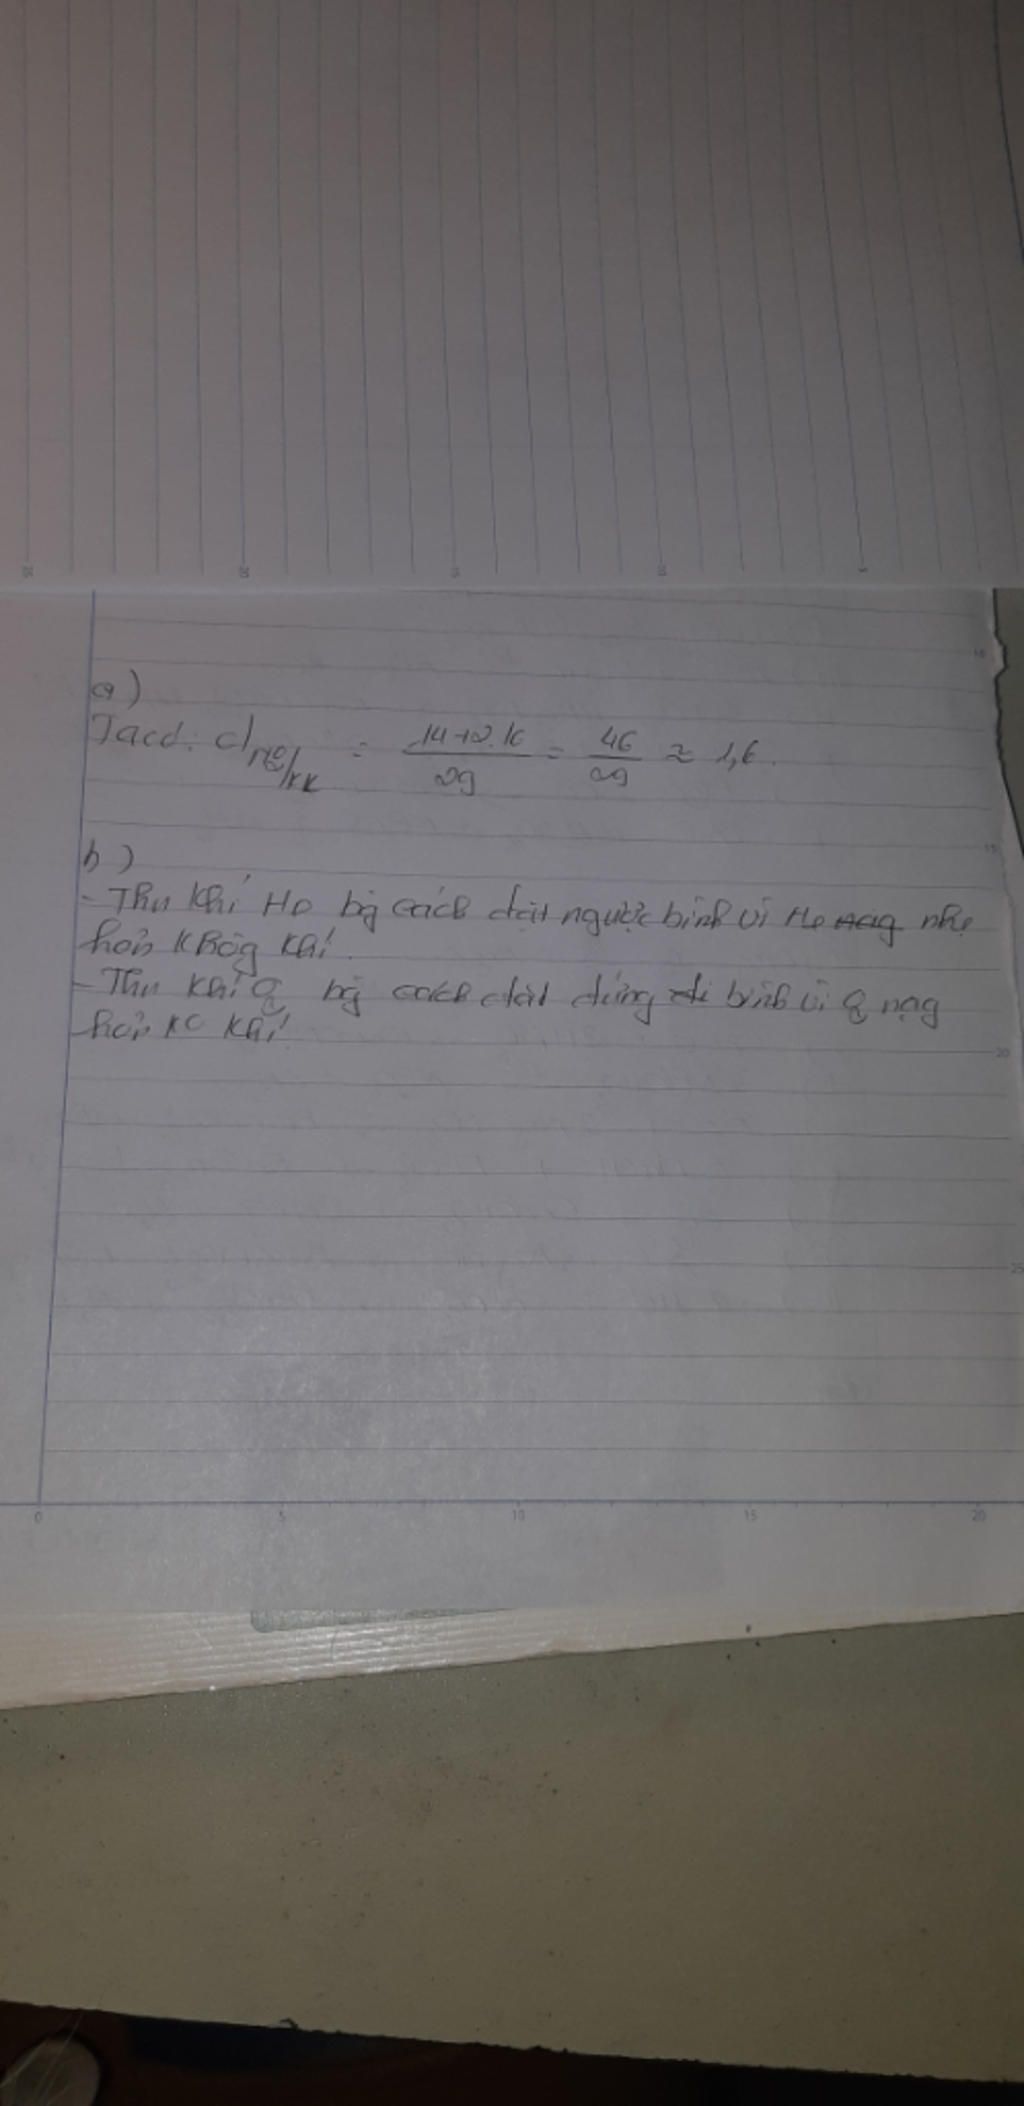 a)
Tacó: d NO2/KK = 14+2.16 / 29 = 46/29 ≈ 1,6.
b)
- Thu khí H2 bg cách đặt ngược bình vì H2 nhẹ
hơn không khí.
- Thu khí O2 bg cách đặt đứng bình vì O2 nặg
hơn KO khí